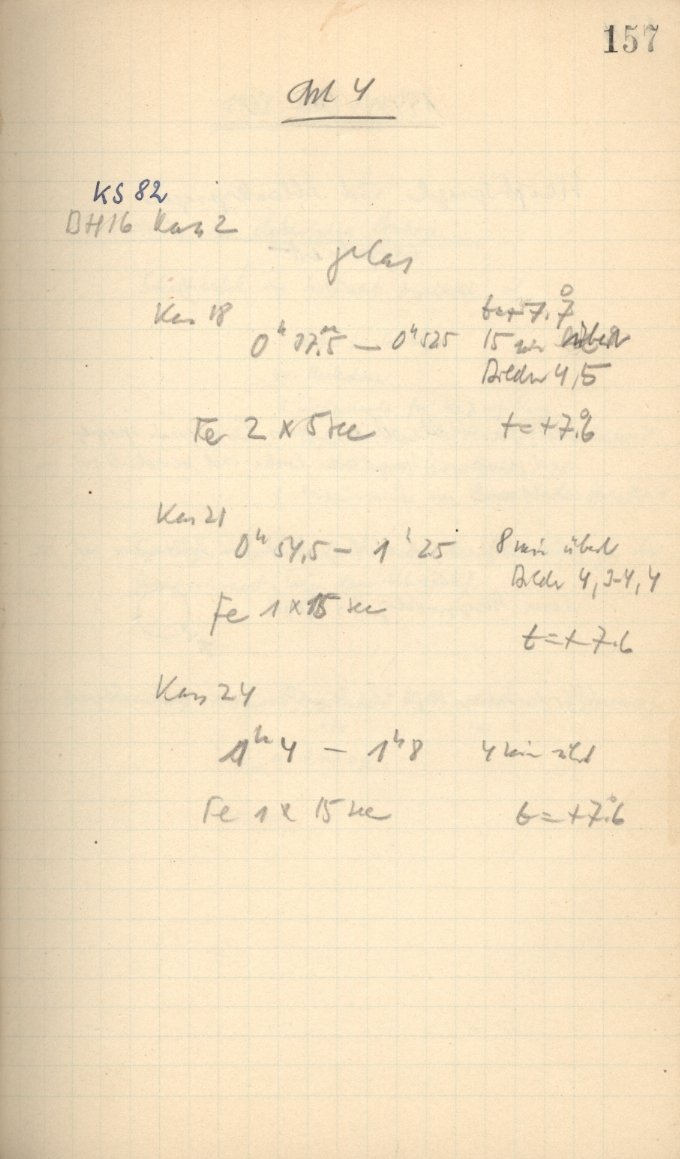 157
4
KS 82
BH16 Kass 2
Kass 18
t=+7.°7
0ʰ 17,5ᵐ — 0ʰ 525 15 min überl
Bilder 4,5
Fe 2 × 5 sec t = +7.°6
Kass 21
0ʰ 54,5 — 1ʰ 25 8 min überl
Bilder 4,3-4,4
Fe 1 × 15 sec
t = +7.6
Kass 24
1ʰ 4 — 1ʰ 8 4 min
Fe 1 × 15 sec t = +7.°6